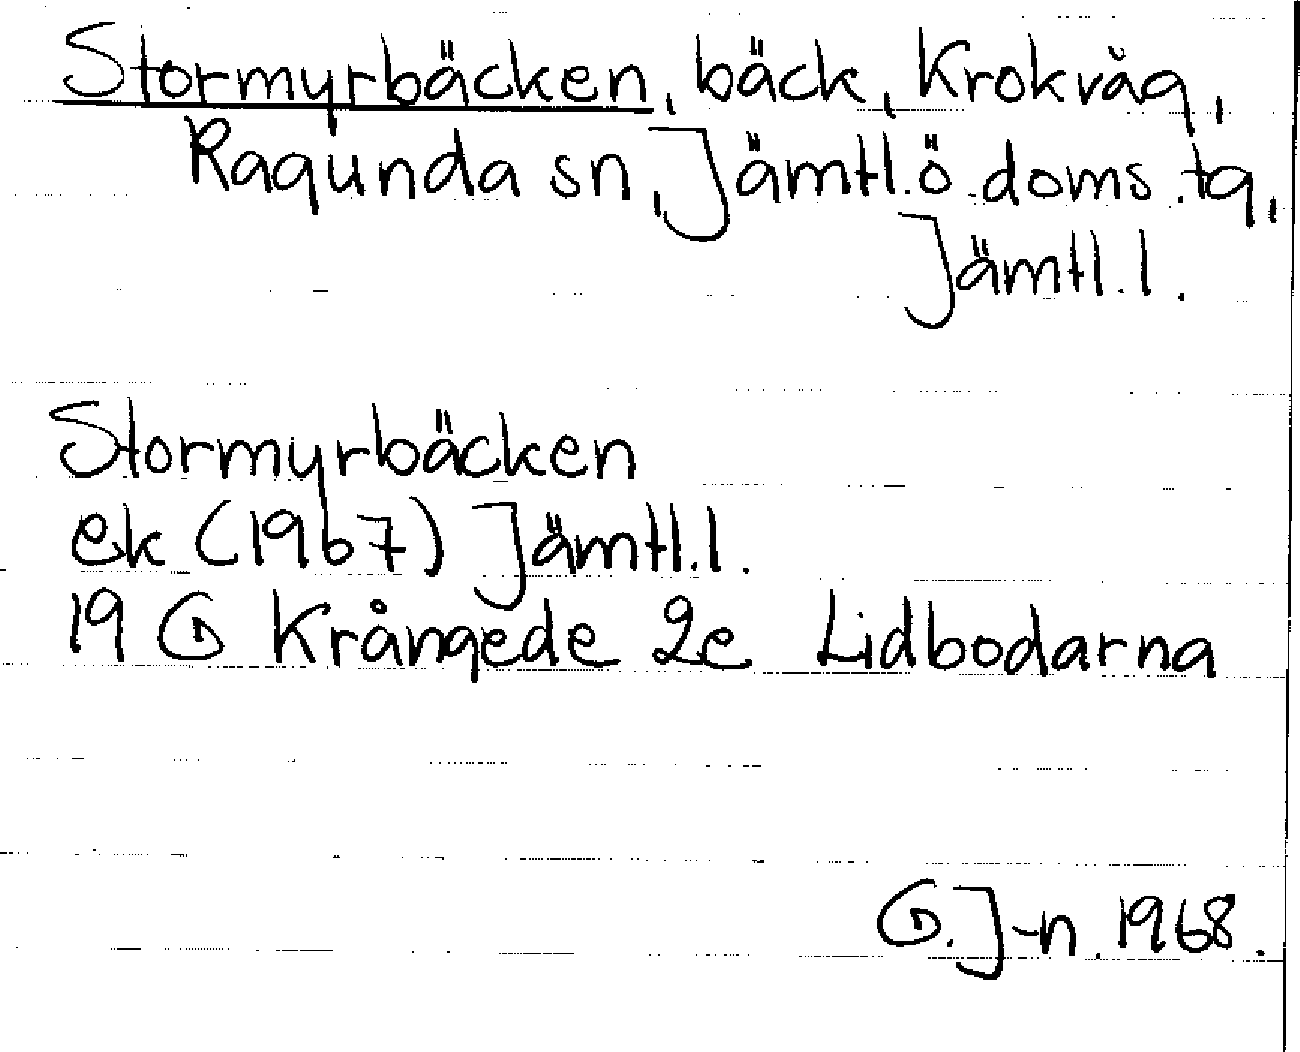 Stormyrbäcken, bäck, Krokvåg,
Ragunda sn, Jämtl. ö. doms. tg,
Jämtl. l.
Stormyrbäcken
ek (1967) Jämtl. l.
19 G Krångede 2e Lidbodarna
G. J-n. 1968.